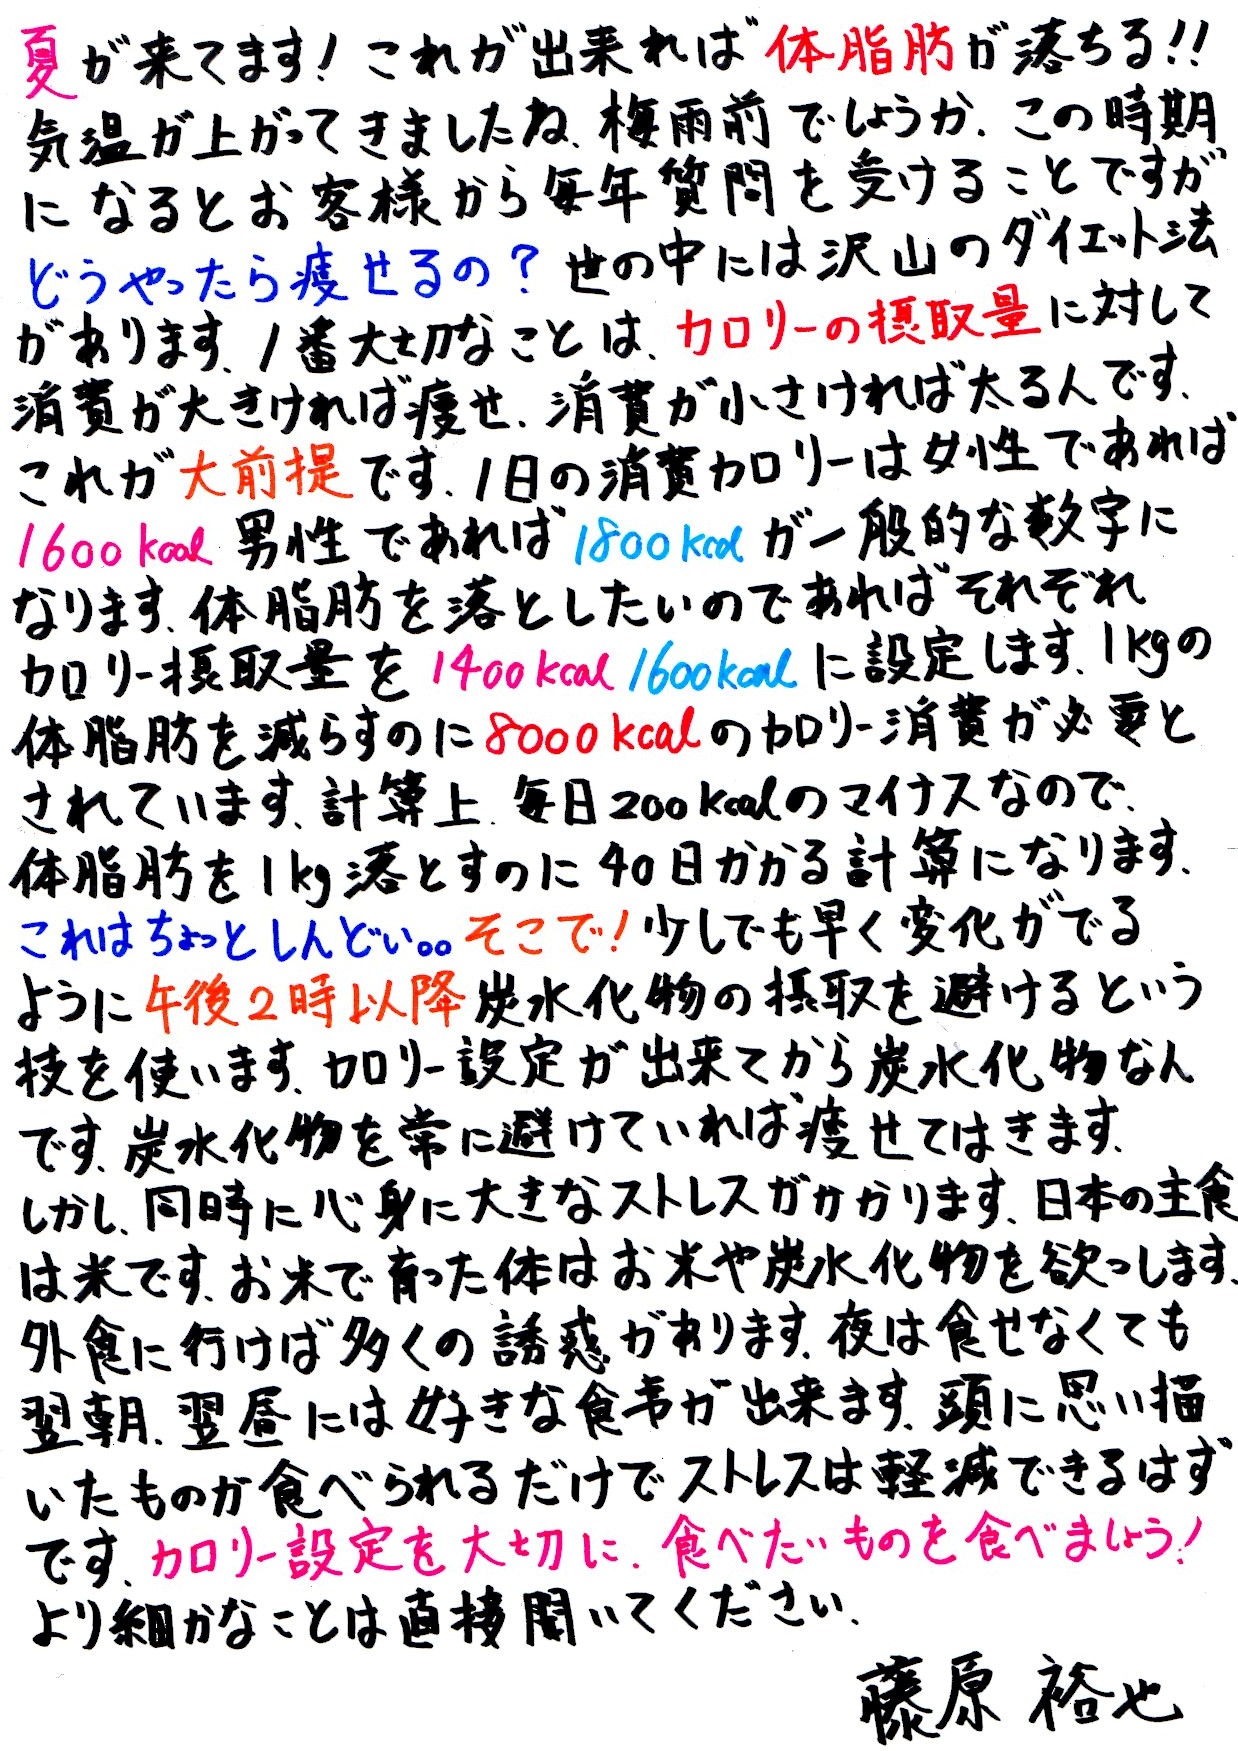 夏が来てます!これが出来れば体脂肪が落ちる!!
気温が上がってきましたね、梅雨前でしょうか、この時期
になるとお客様から毎年質問を受けることですが
どうやったら痩せるの?世の中には沢山のダイエット法
があります、1番大切なことは、カロリーの摂取量に対して
消費が大きければ痩せ、消費が小さければ太るんです、
これが大前提です、1日の消費カロリーは女性であれば
1600kcal 男性であれば1800kcalが一般的な数字に
なります、体脂肪を落としたいのであればそれぞれ
カロリー摂取量を1400kcal 1600kcalに設定します、1kgの
体脂肪を減らすのに8000kcalのカロリー消費が必要と
されています、計算上、毎日200kcalのマイナスなので、
体脂肪を1kg落とすのに40日かかる計算になります、
これはちょっとしんどい。。そこで!少しでも早く変化がでる
ように午後2時以降炭水化物の摂取を避けるという
技を使います、カロリー設定が出来てから炭水化物なん
です、炭水化物を常に避けていれば痩せてはきます、
しかし、同時に心身に大きなストレスがかかります、日本の主食
は米です、お米で育った体はお米や炭水化物を欲っします、
外食に行けば多くの誘惑があります、夜は食せなくても
翌朝、翌昼には好きな食事が出来ます、頭に思い描
いたものが食べられるだけでストレスは軽減できるはず
です、カロリー設定を大切に、食べたいものを食べましょう!
より細かなことは直接聞いてください、
藤原 裕也